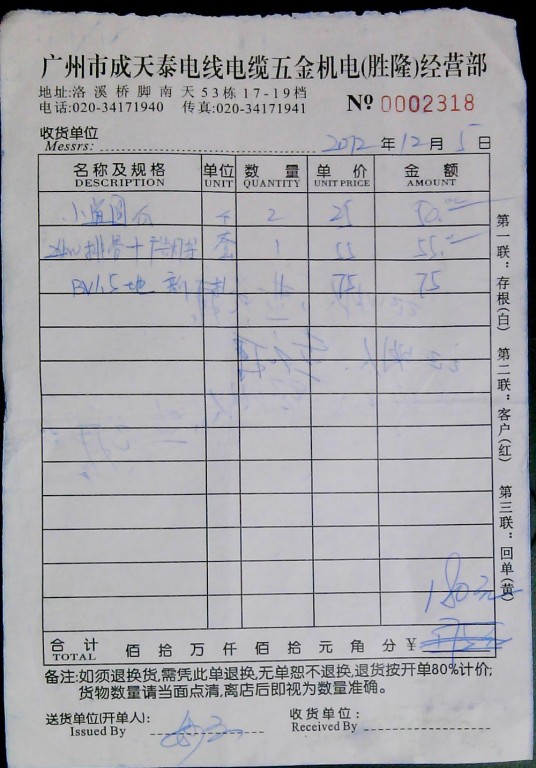 广州市成天泰电线电缆五金机电(胜隆)经营部
地址:洛溪桥脚南天53栋17-19档
电话:020-34171940 传真:020-34171941 Nº 0002318
收货单位
Messrs: 2012年12月5日
名称及规格 单位 数量 单价 金额
DESCRIPTION UNIT QUANTITY UNIT PRICE AMOUNT
2 25 50.00
套 1 55 55.00
BV1.5 75 75
180元
合计 佰拾万仟佰拾元角分¥
TOTAL
备注:如须退换货,需凭此单退换,无单恕不退换,退货按开单80%计价;
货物数量请当面点清,离店后即视为数量准确。
送货单位(开单人): 收货单位:
Issued By Received By
第一联:存根(白) 第二联:客户(红) 第三联:回单(黄)